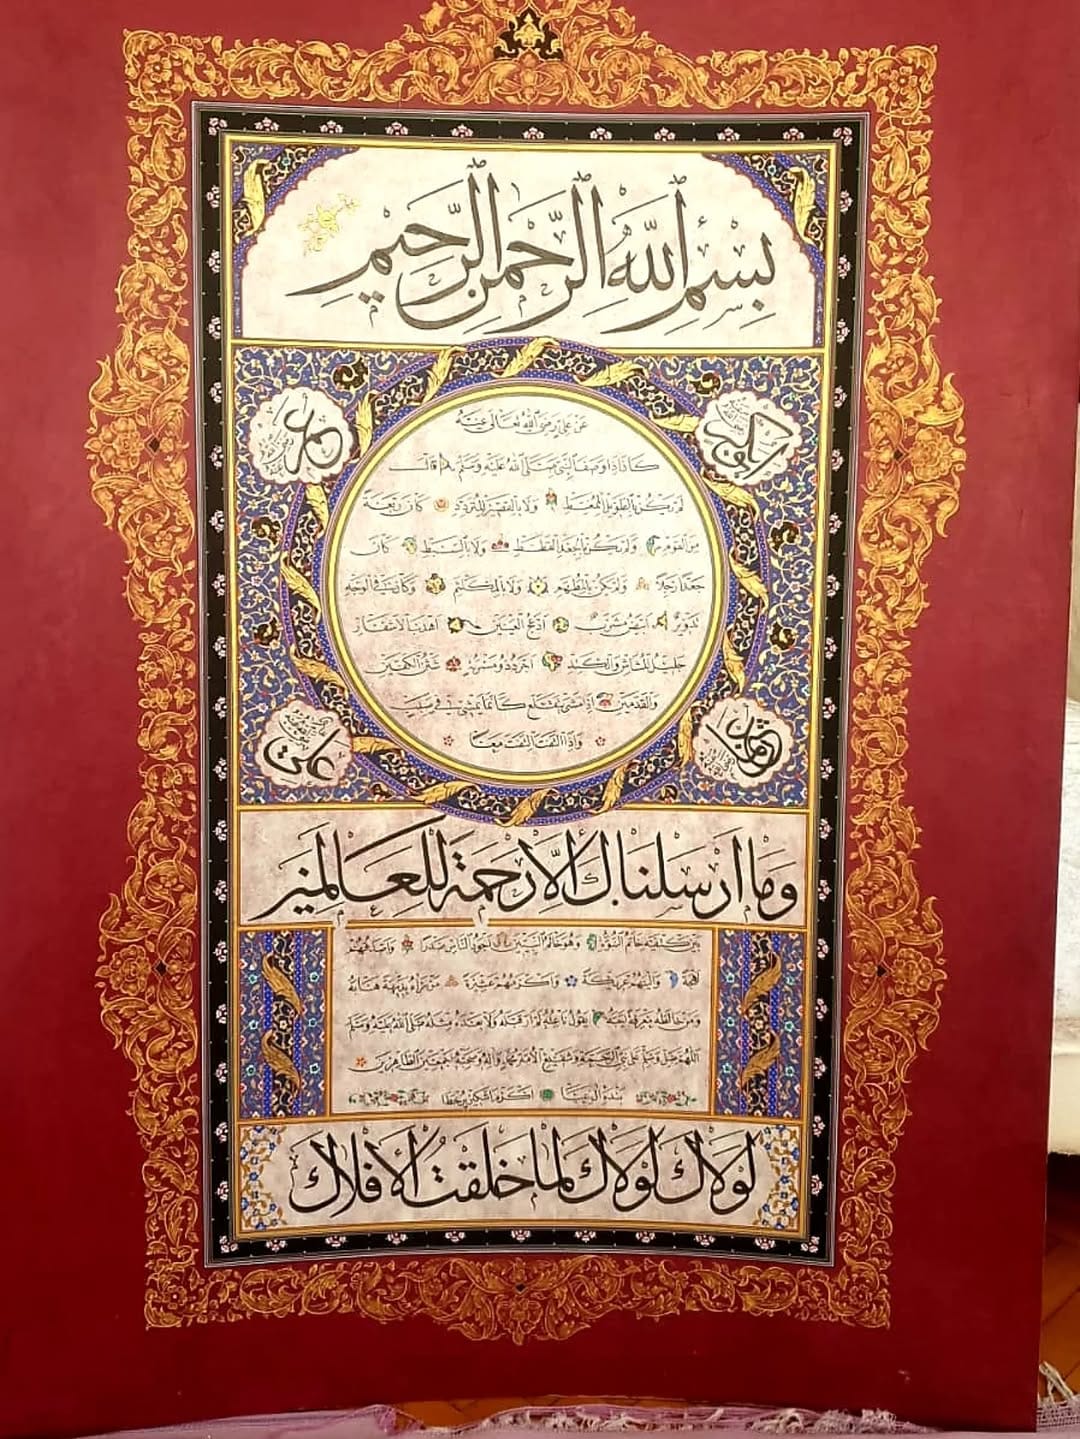 بِسْمِ اللهِ الرَّحْمٰنِ الرَّحِيمِ
ابوبكر رضي الله عنه
عمر رضي الله عنه
عن علي رضي الله تعالى عنه
كان اذا وصف النبي صلى الله عليه وسلم قال
لم يكن بالطويل الممغط ولا بالقصير المتردد كان ربعة
من القوم ولم يكن بالجعد القطط ولا بالسبط كان
جعدا رجلا ولم يكن بالمطهم ولا بالمكلثم وكان في الوجه
تدوير ابيض مشرب ادعج العينين اهدب الاشفار
جليل المشاش والكتد اجرد ذو مسربة شثن الكفين
والقدمين اذا مشى يتقلع كانما يمشي في صبب
واذا التفت التفت معا
عثمان
علي
وما ارسلناك الا رحمة للعالمين
بين كتفيه خاتم النبوة وهو خاتم النبيين اجود الناس صدرا واصدقهم
لهجة والينهم عريكة واكرمهم عشيرة من رآه بديهة هابه
ومن خالطه معرفة احبه يقول ناعته لم ار قبله ولا بعده مثله صلى الله عليه وسلم
اللهم صل وسلم على نبي الرحمة وشفيع الامة محمد وآله وصحبه اجمعين الطاهرين
لولاك لولاك لما خلقت الافلاك